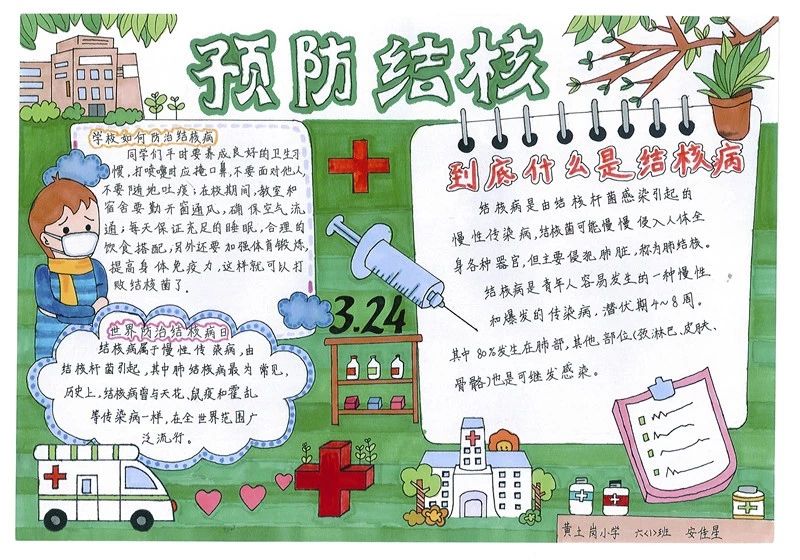 预防结核
学校如何防治结核病
同学们平时要养成良好的卫生习
惯,打喷嚏时应掩口鼻,不要面对他人,
不要随地吐痰;在校期间,教室和
宿舍要勤开窗通风,确保空气流
通;每天保证充足的睡眠,合理的
饮食搭配;另外还要加强体育锻炼,
提高身体免疫力,这样就可以打
败结核菌了.
世界防治结核病日
结核病属于慢性传染病,由
结核杆菌引起,其中肺结核病最为常见,
历史上,结核病曾与天花、鼠疫和霍乱
等传染病一样,在全世界范围广
泛流行。
3.24
到底什么是结核病
结核病是由结核杆菌感染引起的
慢性传染病,结核菌可能慢慢侵入人体全
身各种器官,但主要侵犯肺脏,称为肺结核。
结核病是青年人容易发生的一种慢性
和爆发的传染病,潜伏期4~8周。
其中80%发生在肺部,其他,部位(颈淋巴、皮肤、
骨骼)也是可继发感染。
黄土岗小学 六<1>班 安佳星